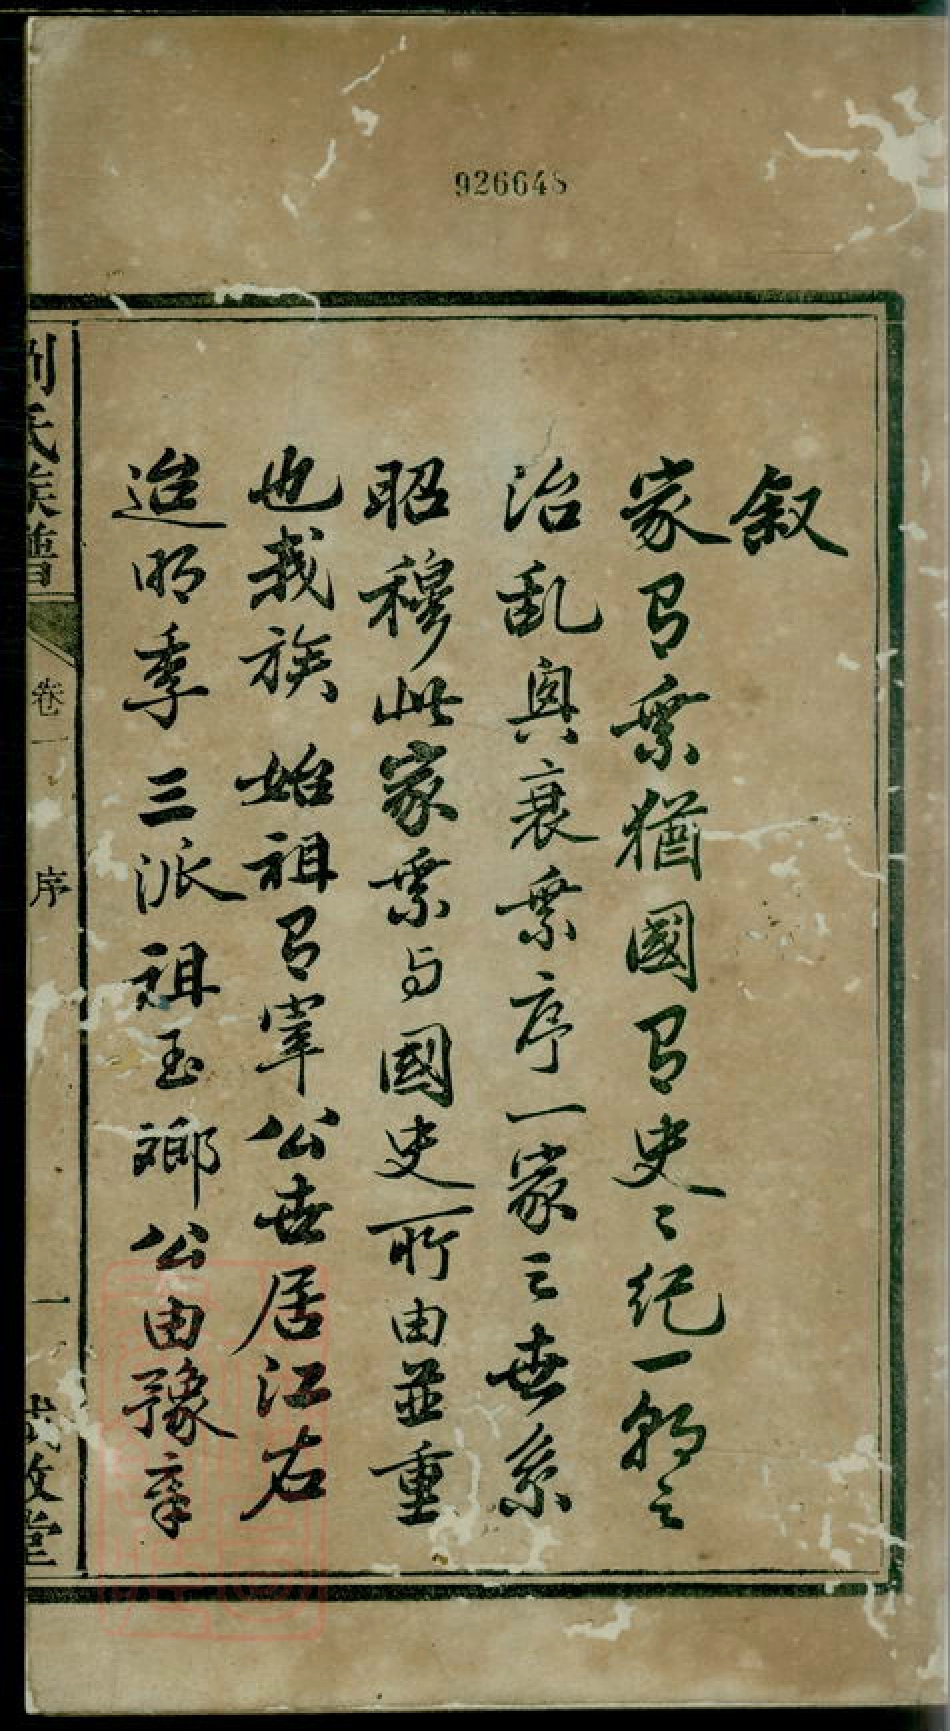 926648
叙
家有乘猶國有史〻紀一朝之
治乱興衰乘序一家之世系
昭穆此家乘与國史所由並重
也我族 始祖有宰公世居江右
迨明季三派祖玉瑯公由豫章
劉氏族譜 卷一 序 一 敦堂